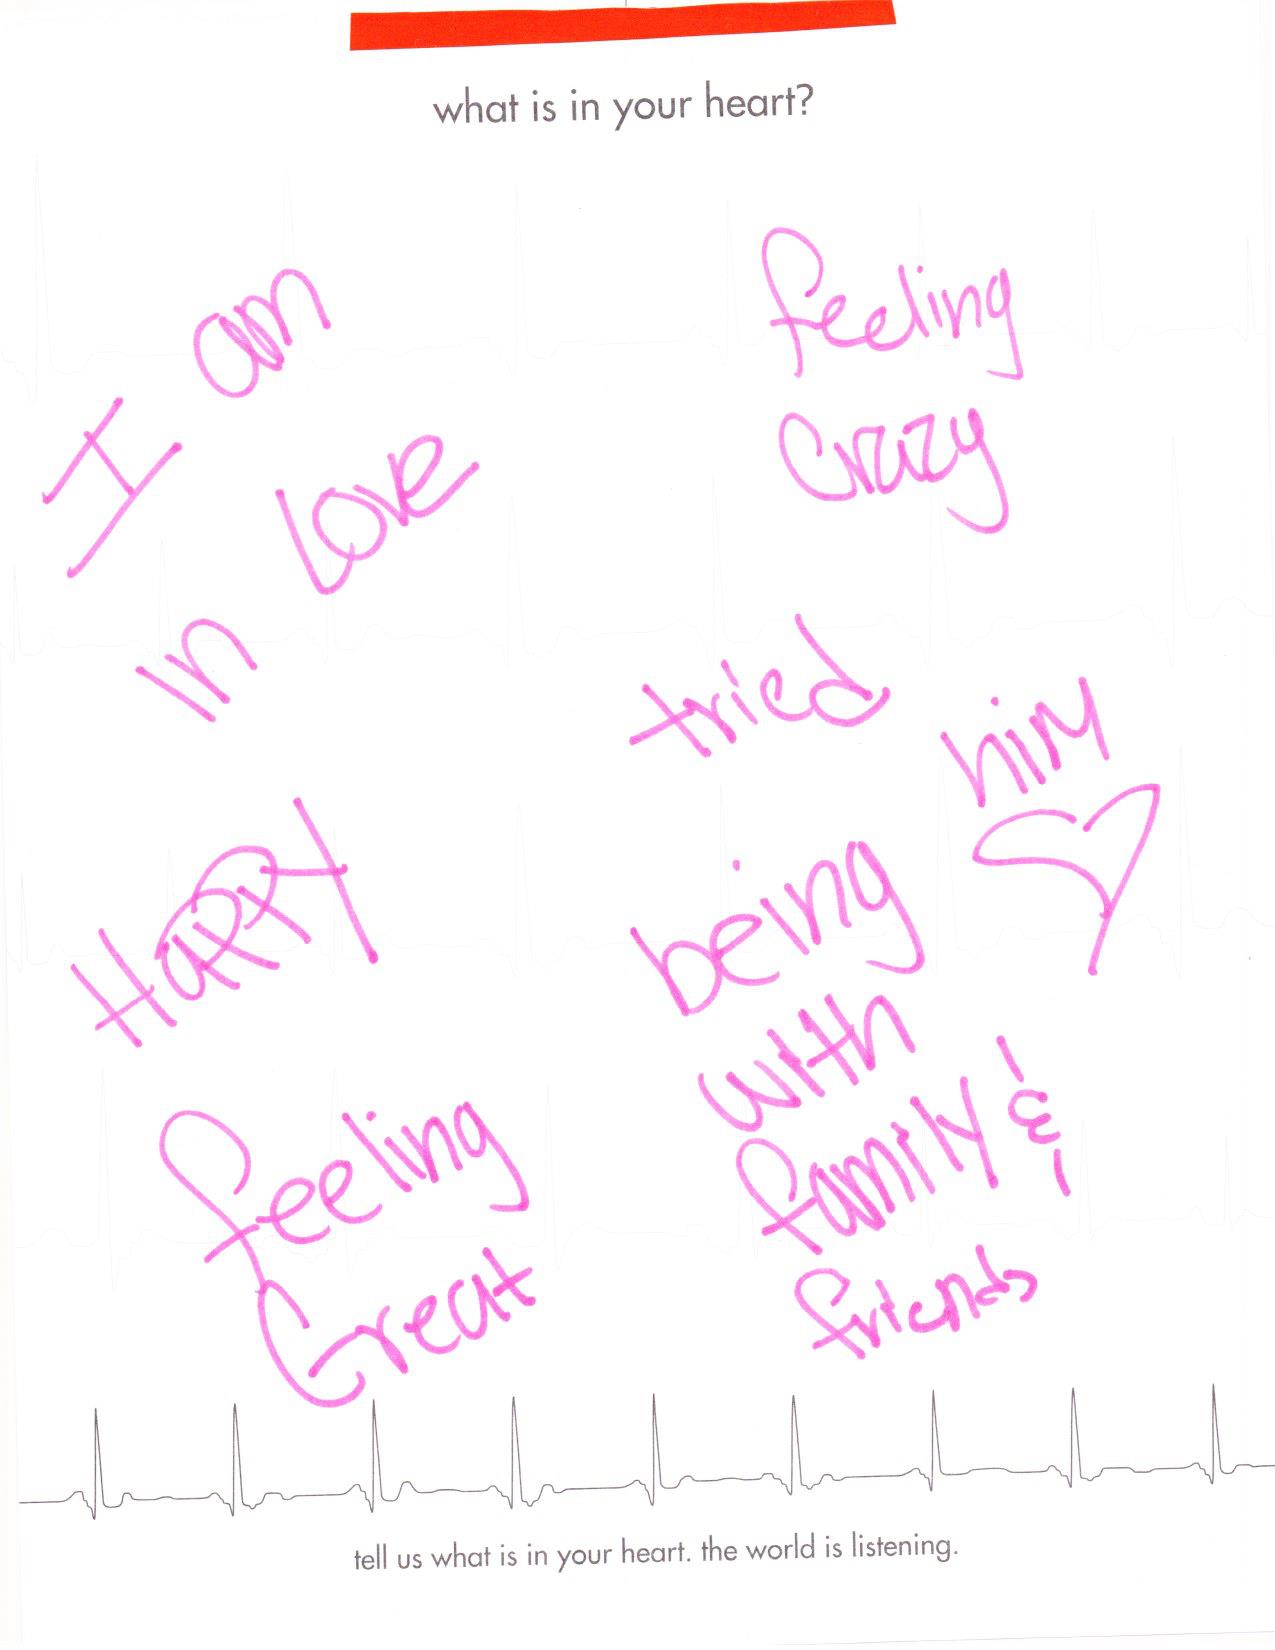 what is in your heart?
I am
in Love
Happy
feeling
Great
feeling
crazy
tried
him
being
with
family &
friends
tell us what is in your heart. the world is listening.